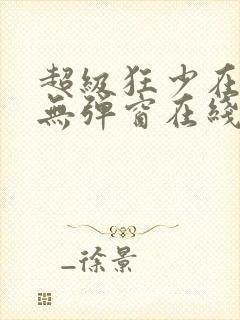 超級狂少在
無彈窗在綫
_徐景